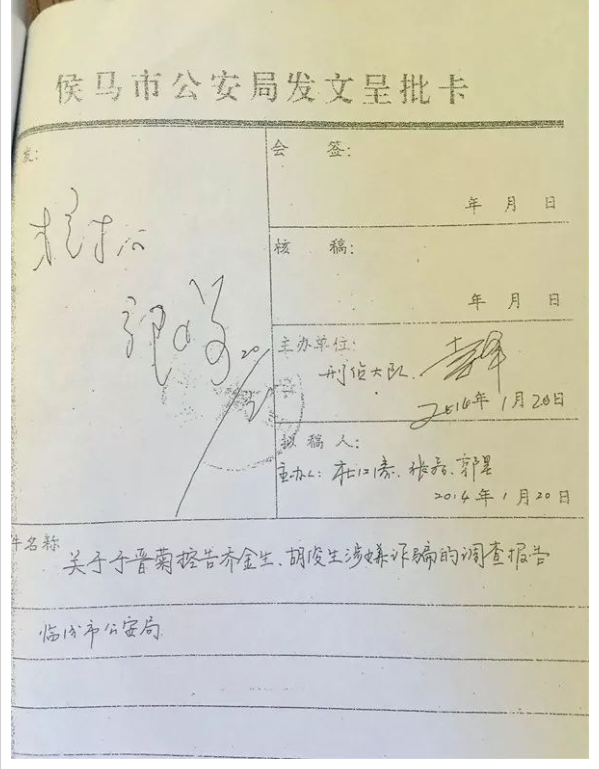 侯马市公安局发文呈批卡
发:
会 签:
年 月 日
核 稿:
年 月 日
主办单位:
刑侦大队
2014年1月20日
拟稿人:
主办人:
2014年1月20日
件名称
关于于晋菊控告乔金生、胡俊生涉嫌诈骗的调查报告
临汾市公安局